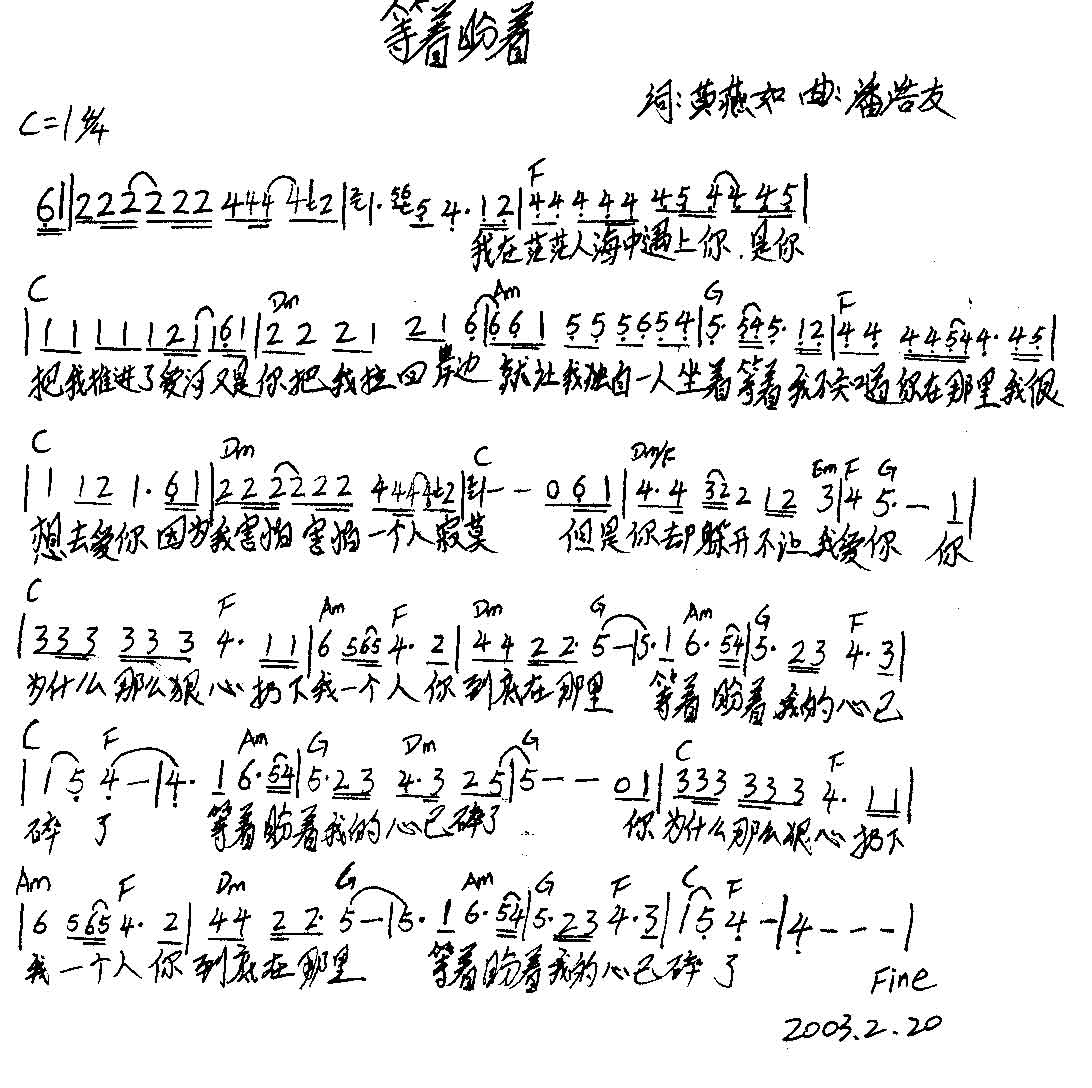 等着盼着
词:黄燕如 曲:潘浩友
C=1 4/4
F
61||222222 444442|21. 5 4. 12|44 444 45 4445|
我在茫茫人海中遇上你,是你
C Dm Am G F
|1 1 1 1 1 2 1 1 6 1|2 2 2 1 2 1 6|6 6 1 5 5 5 6 5 4|5. 5 4 5. 1 2|4 4 4 4 5 4 4. 4 5|
把我推进了爱河又是你把我拉回岸边 就让我独自一人坐着等着我不知道你在那里我很
C Dm C Dm/F Em F G
|1 1 2 1. 6 1|2 2 2 2 2 2 2 4 4 4 4 2|1 - - 0 6 1|4. 4 3 2 2 1 2 3|4 5. - 1|
想去爱你因为我害怕害怕一个人寂莫 但是你却躲开不让我爱你 你
C F Am F Dm G Am G F
|3 3 3 3 3 3 4. 1 1|6 5 6 5 4. 2|4 4 2 2. 5-|5. 1 6. 5 4|5. 2 3 4. 3|
为什么那么狠心扔下我一个人你到底在那里 等着盼着我的心已
C F Am G Dm G C F
|1 5 4-|4. 1 6. 5 4|5. 2 3 4. 3 2 5|5 - - 0 1|3 3 3 3 3 3 4. 1 1|
碎了 等着盼着我的心已碎了 你为什么那么狠心扔下
Am F Dm G Am G F C F
|6 5 6 5 4. 2|4 4 2 2. 5-|5. 1 6. 5 4|5. 2 3 4. 3|1 5 4-|4 - - -|
我一个人你到底在那里 等着盼着我的心已碎了
Fine
2003.2.20